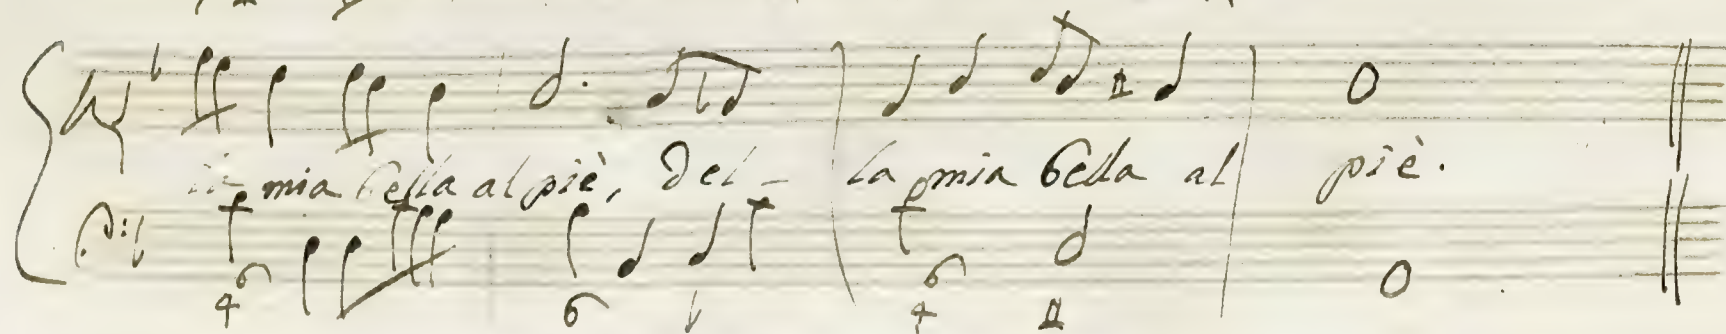 la mia bella al piè, Del - la mia bella al piè.
6 4 6 ♭ 6 4 #